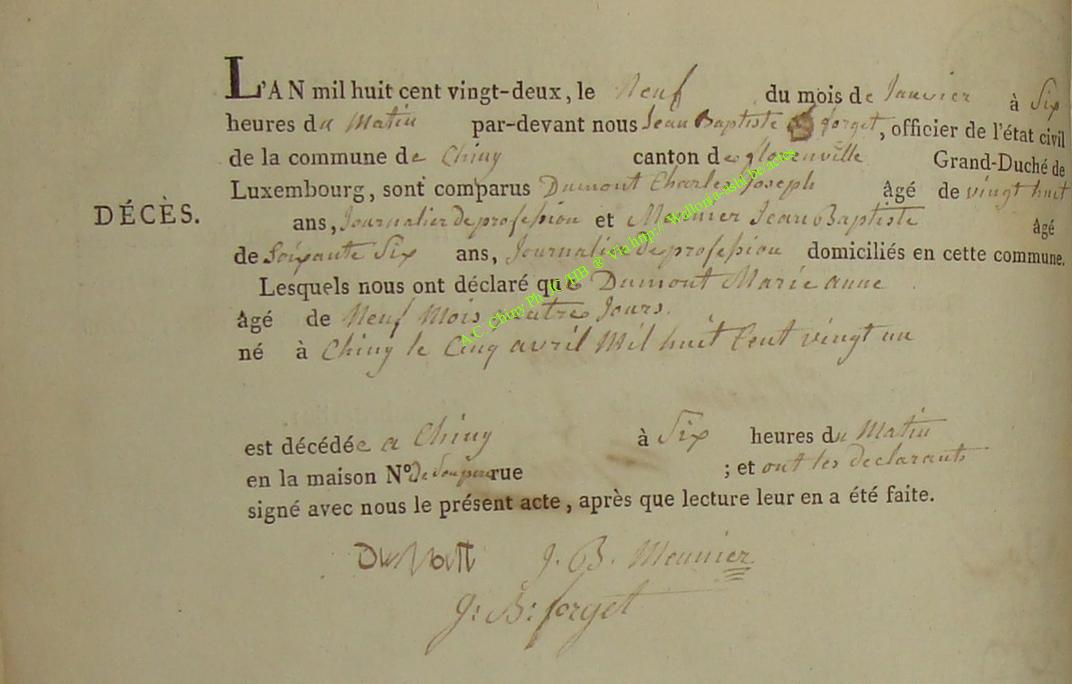 L'AN mil huit cent vingt-deux, le Neuf du mois de Janvier à Six
heures du Matin par-devant nous Jean Baptiste forget, officier de l'état civil
de la commune de Chiny canton de florenville Grand-Duché de
Luxembourg, sont comparus Dumont Charles Joseph âgé de vingt huit
DÉCÈS.
ans, Journalier de profession et Meunier Jean Baptiste âgé
de Soixante Six ans, Journalier de profession domiciliés en cette commune.
Lesquels nous ont déclaré que Dumont Marie anne
âgé de Neuf Mois quatre Jours.
né à Chiny le Cinq avril Mil huit Cent vingt un
est décédée a Chiny à Six heures du Matin
en la maison N° de Son pere rue ; et ont les declarants
signé avec nous le présent acte, après que lecture leur en a été faite.
Dumont J. B. Meunier
J: B: forget
A.C. Chiny Photo HB @ Via http:// Wallonia-asbl.be/actes